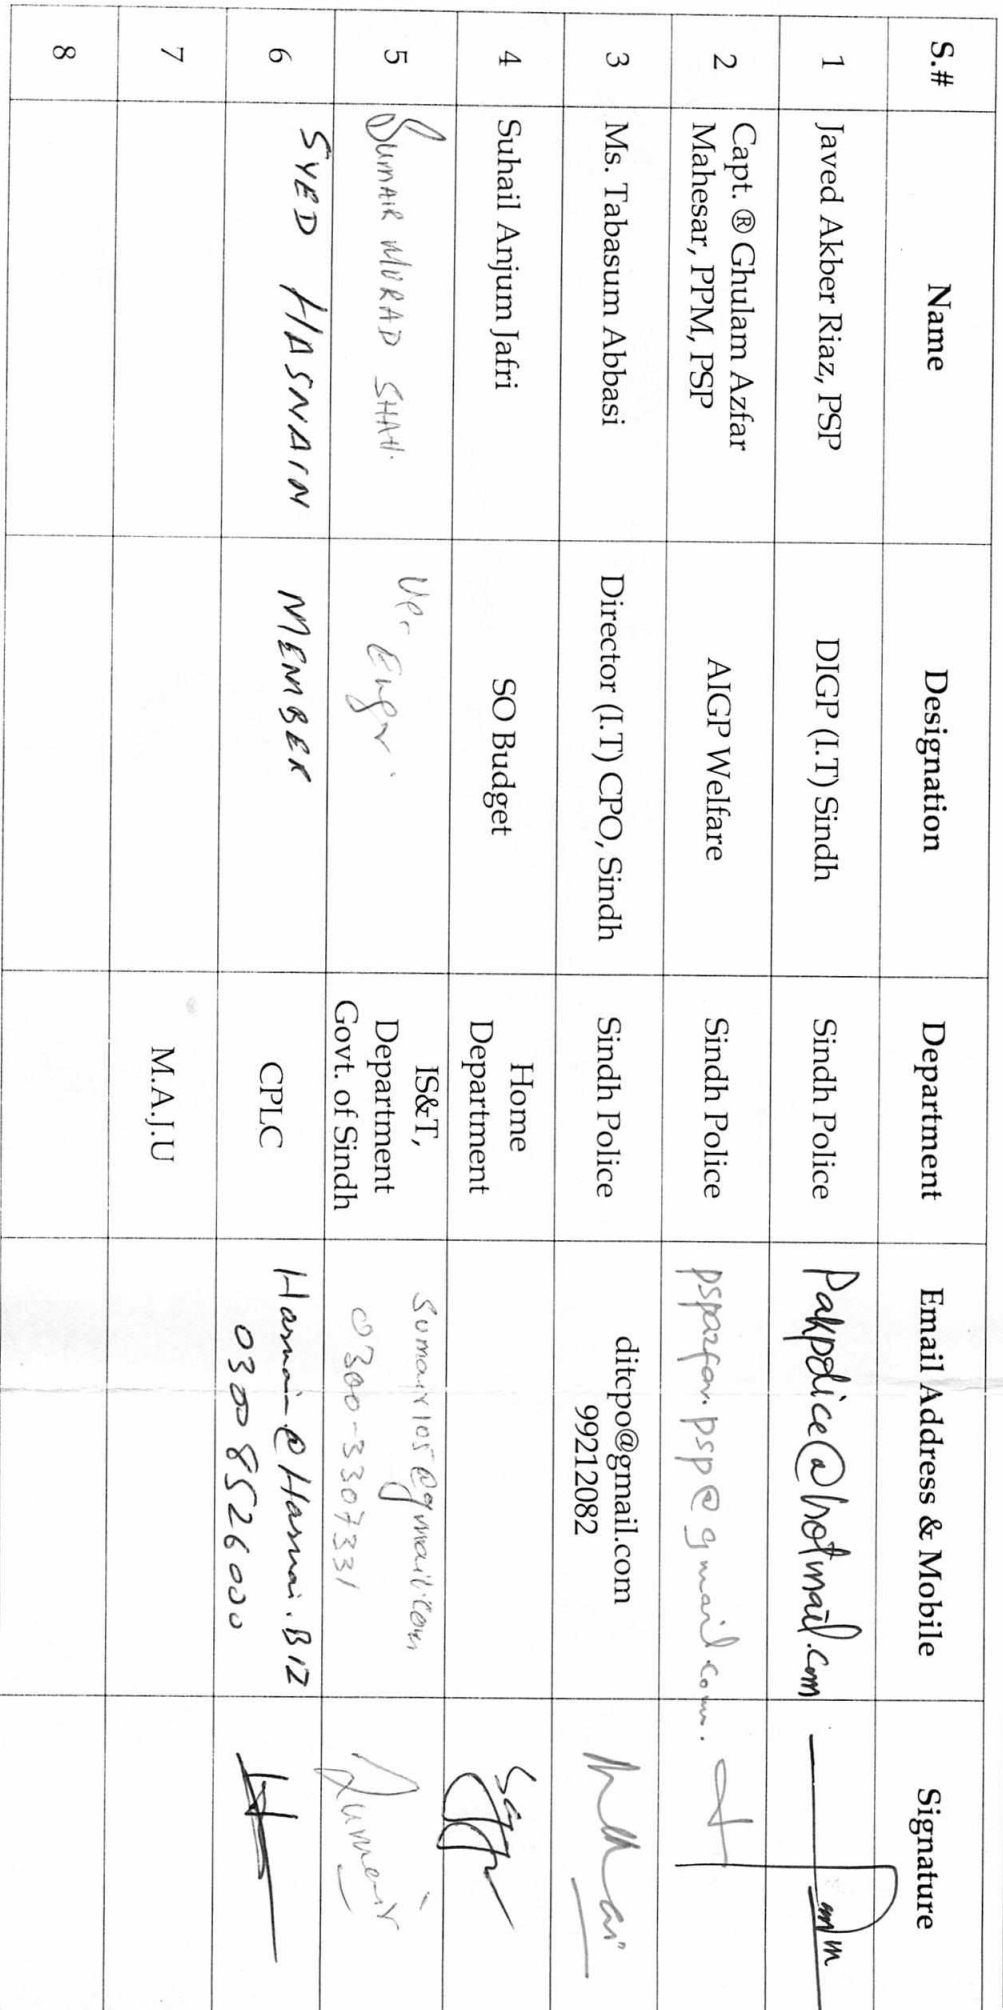 S.# Name Designation Department Email Address & Mobile Signature
1 Javed Akber Riaz, PSP DIGP (I.T) Sindh Sindh Police Pakpolice@hotmail.com
2 Capt. ® Ghulam Azfar
Mahesar, PPM, PSP AIGP Welfare Sindh Police pspazfar.psp@gmail.com.
3 Ms. Tabasum Abbasi Director (I.T) CPO, Sindh Sindh Police ditcpo@gmail.com
99212082
4 Suhail Anjum Jafri SO Budget Home
Department
5 SUMAIR MURAD SHAH. Engr. IS&T,
Department
Govt. of Sindh sumair105@gmail.com
0300-3307331 Sumair
6 SYED HASNAIN MEMBER CPLC
0300 8526000
7 M.A.J.U
8